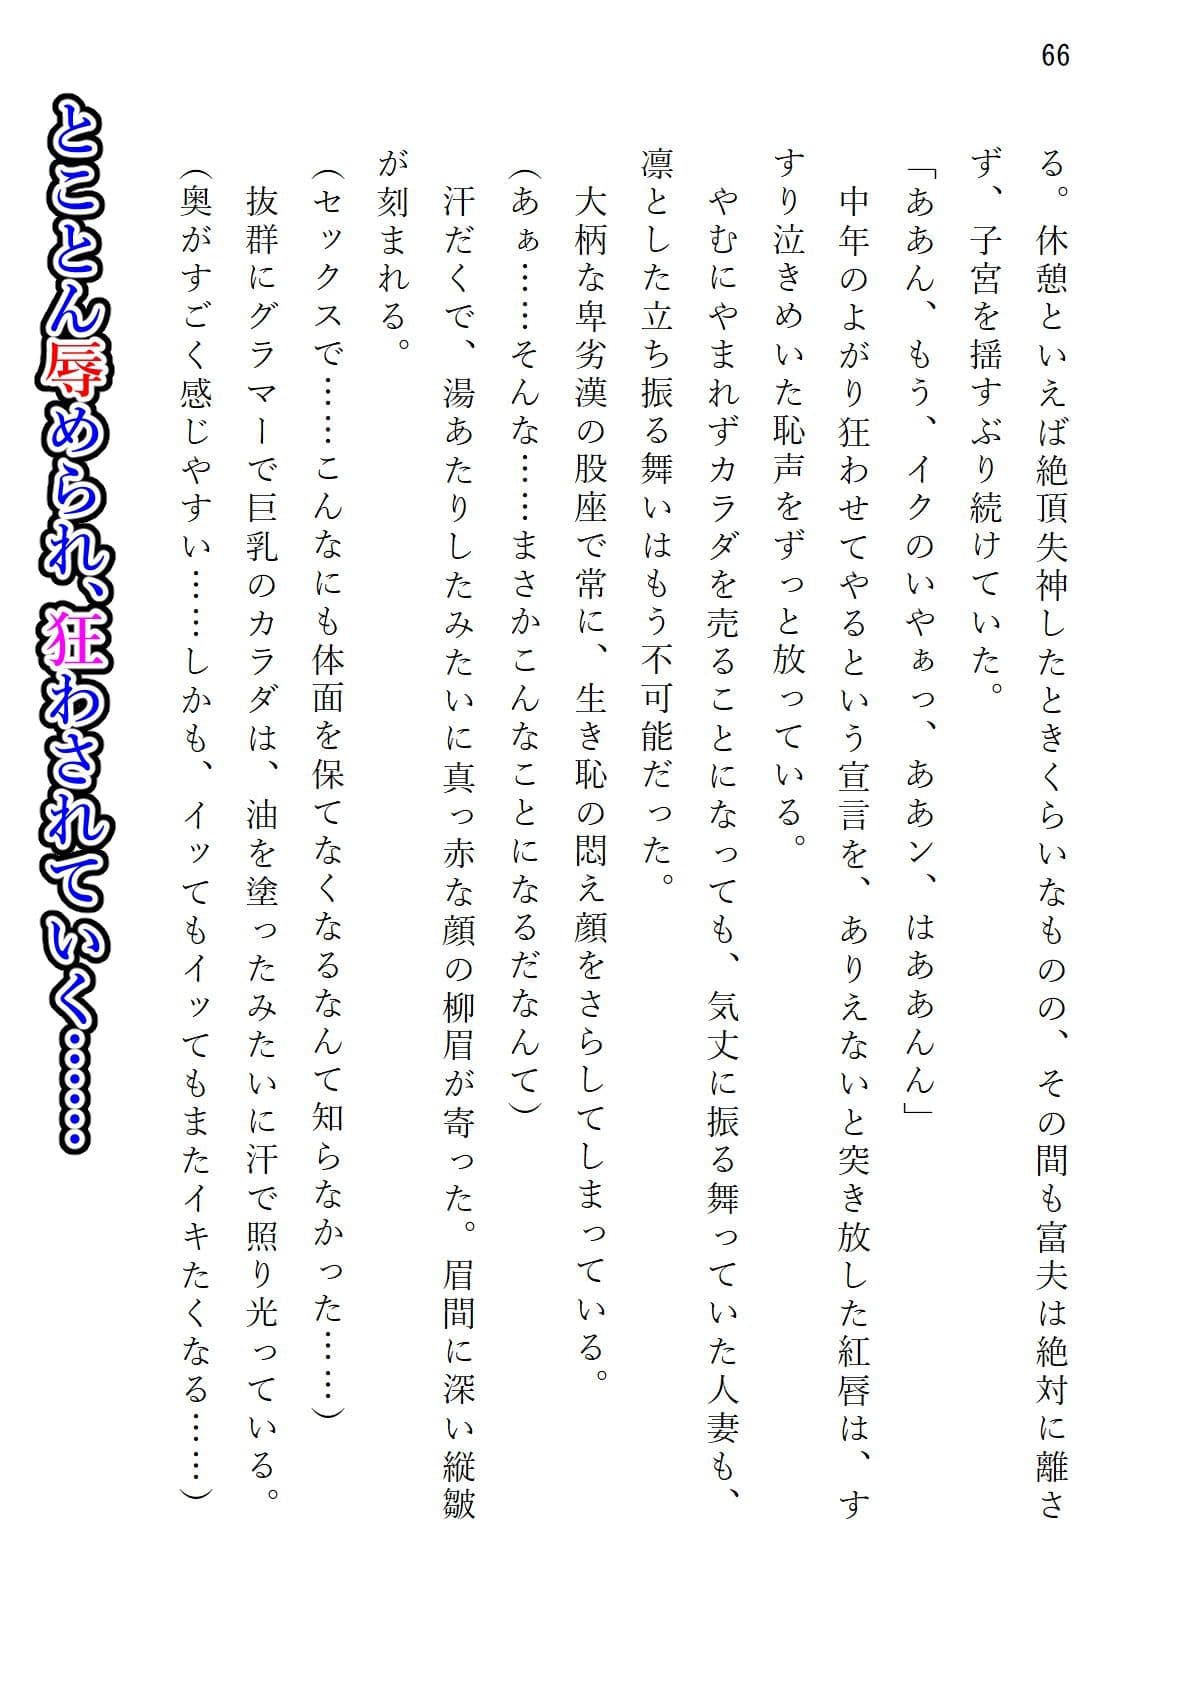 66
る。休憩といえば絶頂失神したときくらいなものの、その間も富夫は絶対に離さ
ず、子宮を揺すぶり続けていた。
「ああん、もう、イクのいやぁっ、ああン、はああんん」
中年のよがり狂わせてやるという宣言を、ありえないと突き放した紅唇は、す
すり泣きめいた恥声をずっと放っている。
やむにやまれずカラダを売ることになっても、気丈に振る舞っていた人妻も、
凛とした立ち振る舞いはもう不可能だった。
大柄な卑劣漢の股座で常に、生き恥の悶え顔をさらしてしまっている。
(あぁ……そんな……まさかこんなことになるだなんて)
汗だくで、湯あたりしたみたいに真っ赤な顔の柳眉が寄った。眉間に深い縦皺
が刻まれる。
(セックスで……こんなにも体面を保てなくなるなんて知らなかった……)
抜群にグラマーで巨乳のカラダは、油を塗ったみたいに汗で照り光っている。
(奥がすごく感じやすい……しかも、イッてもイッてもまたイキたくなる……)
とことん辱められ、狂わされていく……